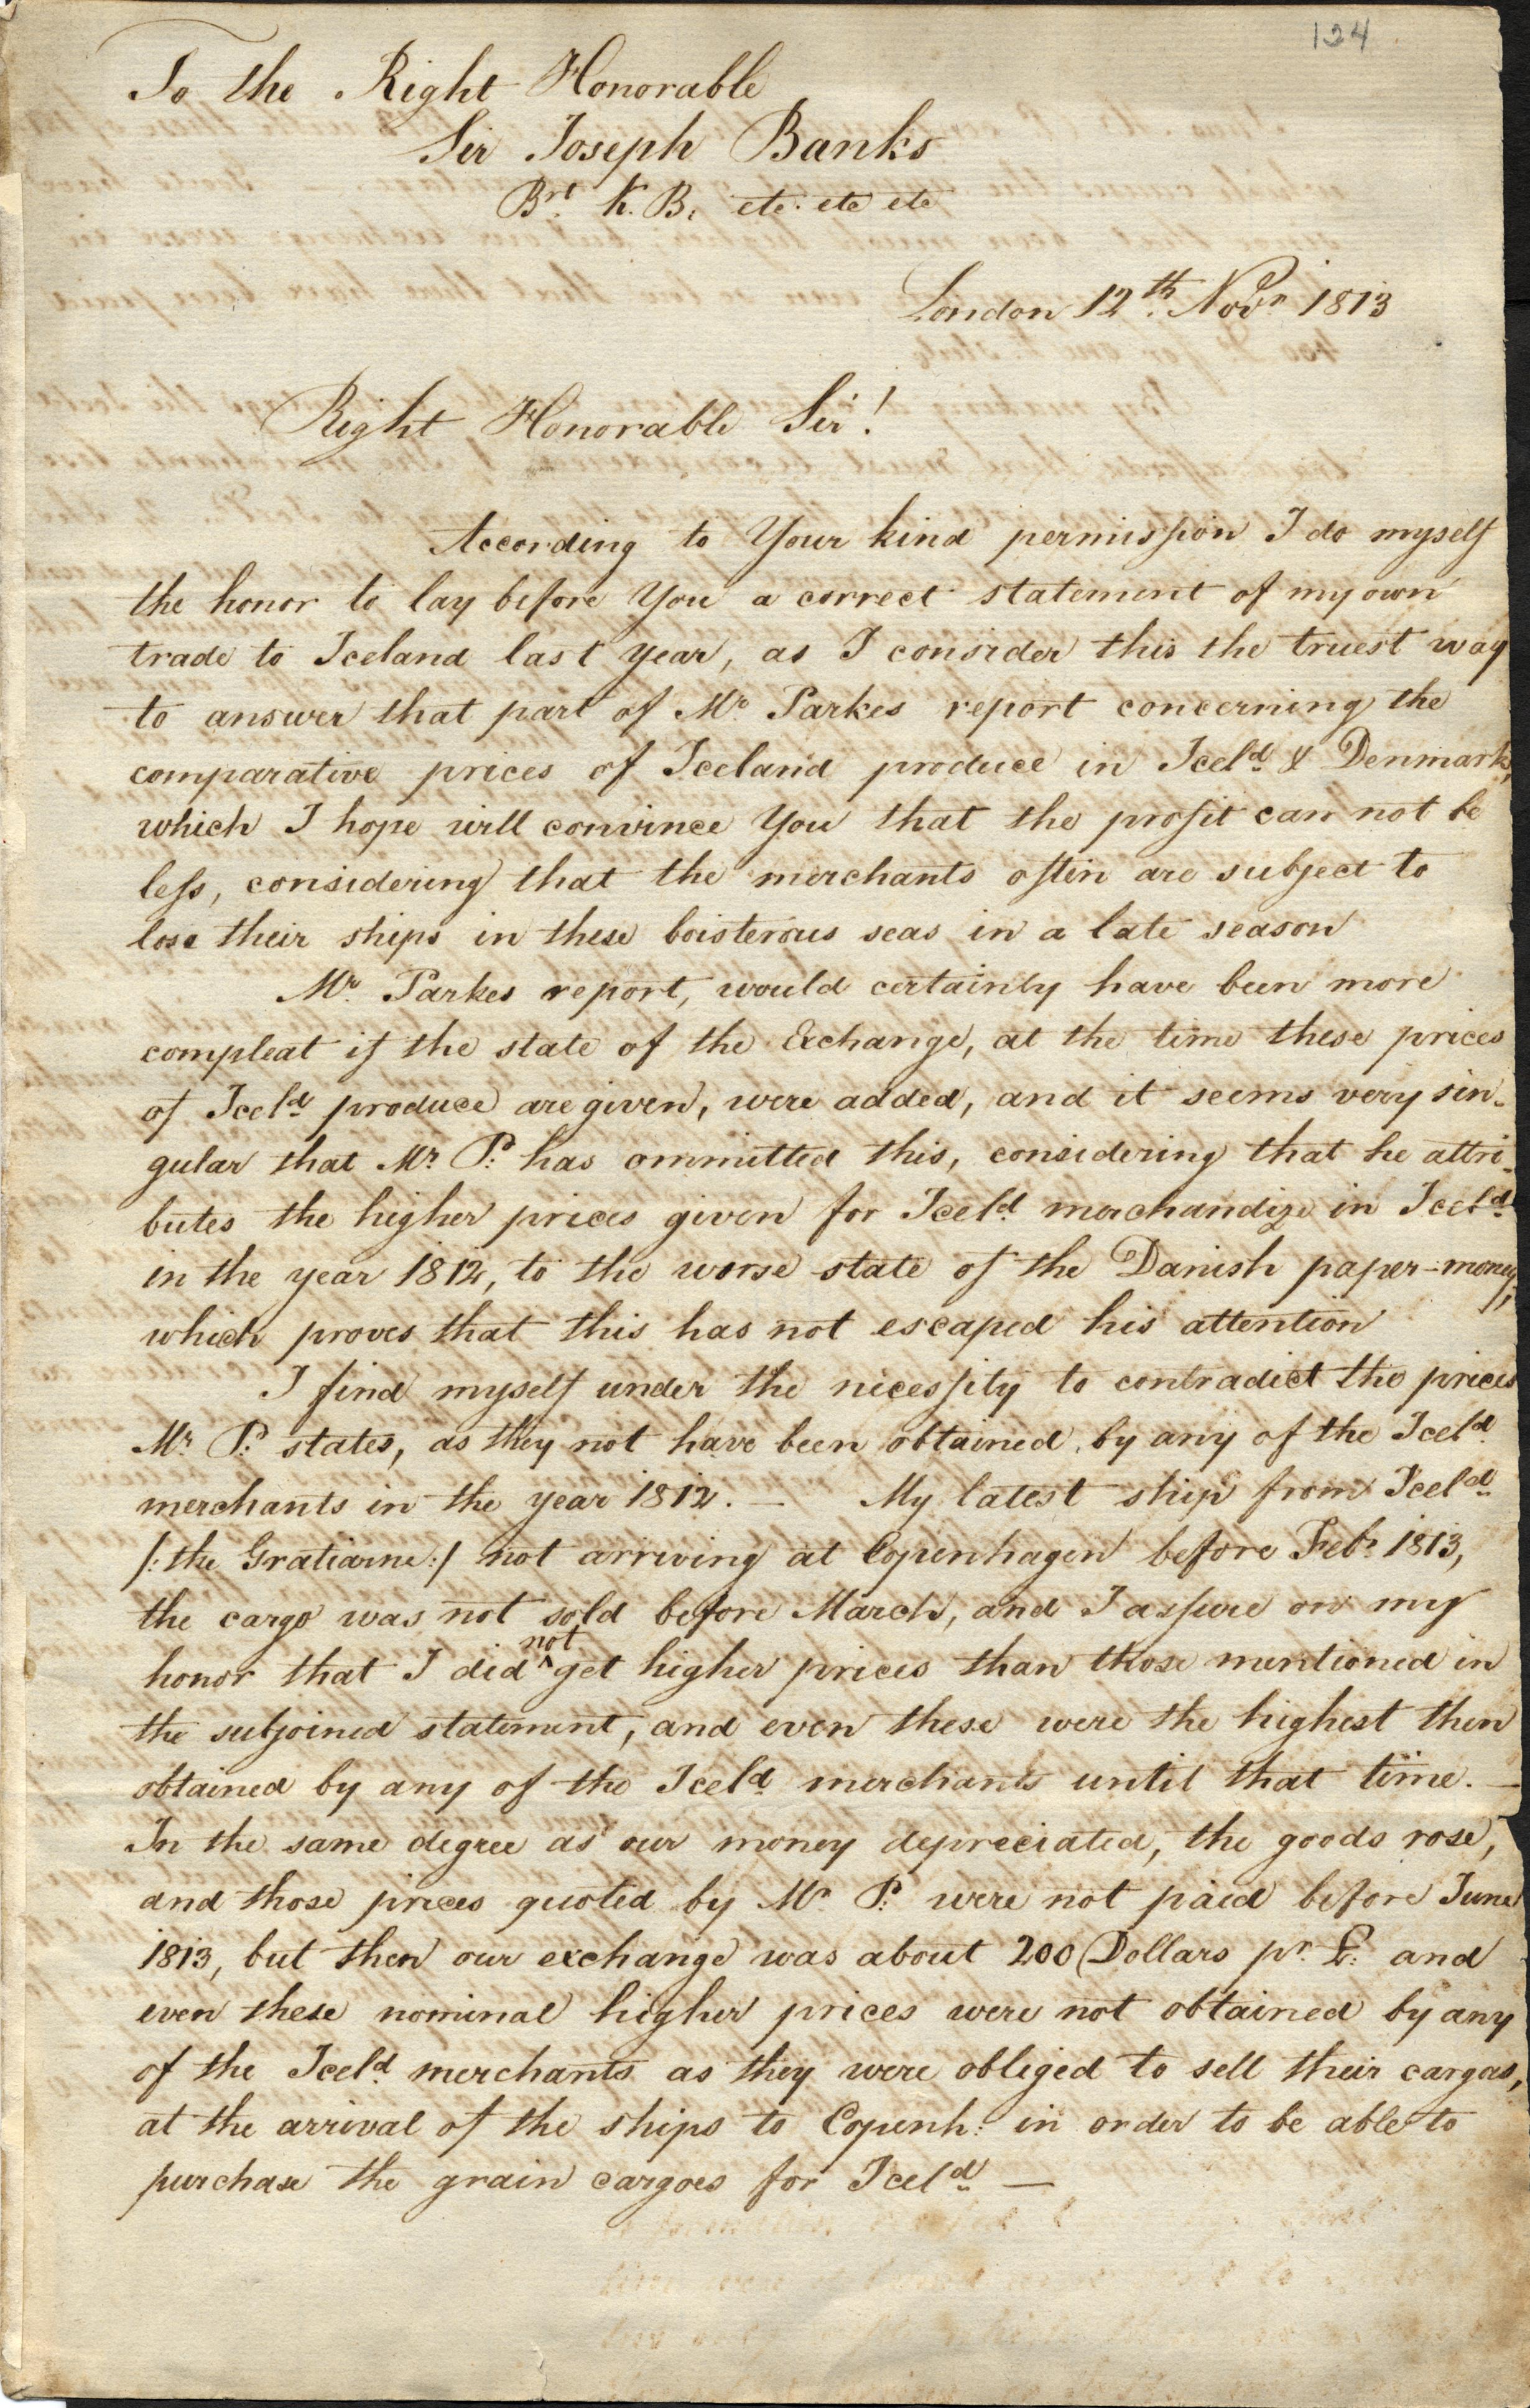 124
To the Right Honorable
Sir Joseph Banks
Brt. K. B. etc. etc etc
London 12th. Novr 1813
Right Honorable Sir!
According to Your kind permission I do myself
the honor to lay before You a correct statement of my own
trade to Iceland last year, as I consider this the truest way
to answer that part of Mr. Parkes report concerning the
comparative prices of Iceland produce in Iceld. & Denmark,
which I hope will convince You that the profit can not be
less, considering that the merchants often are subject to
lose their ships in these boisterous seas in a late season
Mr. Parkes report, would certainly have been more
compleat if the state of the Exchange, at the time these prices
of Iceld. produce are given, were added, and it seems very sin-
gular that Mr. P: has ommitted this, considering that he attri-
butes the higher prices given for Iceld. merchandize in Iceld.
in the year 1812, to the worse state of the Danish paper-money,
which proves that this has not escaped his attention
I find myself under the necessity to contradict the prices
Mr. P: states, as they not have been obtained by any of the Iceld.
merchants in the year 1812. — My latest ship from Iceld.
/: the Gratiarne :/ not arriving at Copenhagen before Febr. 1813,
the cargo was not sold before March, and I assure on my
honor that I did not get higher prices than those mentioned in
the subjoined statement, and even these were the highest then
obtained by any of the Iceld. merchants until that time. —
In the same degree as our money depreciated, the goods rose,
and those prices quoted by Mr P: were not paid before June
1813, but then our exchange was about 200 Dollars pr. £: and
even these nominal higher prices were not obtained by any
of the Iceld. merchants as they were obliged to sell their cargoes,
at the arrival of the ships to Copenh: in order to be able to
purchase the grain cargoes for Iceld. —